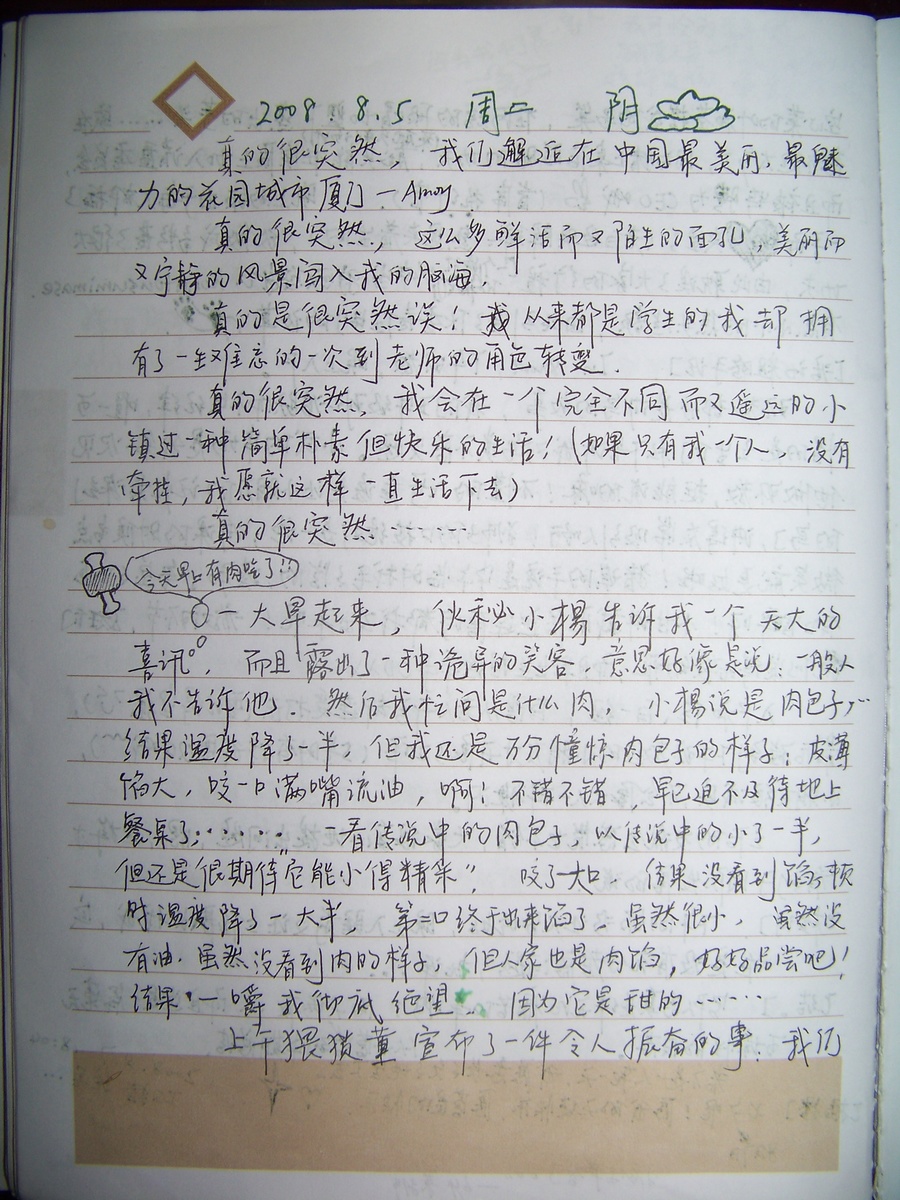 2008.8.5 周二 阴
真的很突然, 我们邂逅在中国最美丽、最魅
力的花园城市厦门 - Amoy
真的很突然, 这么多鲜活而又陌生的面孔, 美丽而
又宁静的风景闯入我的脑海.
真的是很突然诶! 我从来都是学生的我却拥
有了一趟难忘的一次到老师的角色转变.
真的很突然, 我会在一个完全不同而又遥远的小
镇过一种简单朴素但快乐的生活! (如果只有我一个人, 没有
牵挂, 我愿就这样一直生活下去)
真的很突然
今天早上有肉吃了!!
一大早起来, 伙秘小楊告诉我一个天大的
喜讯, 而且露出了一种诡异的笑容, 意思好像是说: 一般人
我不告诉他. 然后我忙问是什么肉, 小楊说是肉包子,…
结果温度降了一半, 但我还是万分憧憬肉包子的样子: 皮薄
馅大, 咬一口满嘴流油, 啊! 不错不错, 早已迫不及待地上
餐桌了…… 一看传说中的肉包子, 以传说中的小了一半,
但还是很期待它能"小得精来", 咬了一大口, 结果没看到馅, 顿
时温度降了一大半, 第二口终于出来馅了, 虽然很小, 虽然没
有油, 虽然没看到肉的样子, 但人家也是肉馅, 好好品尝吧!
结果一嚼我彻底绝望, 因为它是甜的……
上午猥琐董宣布了一件令人振奋的事: 我们